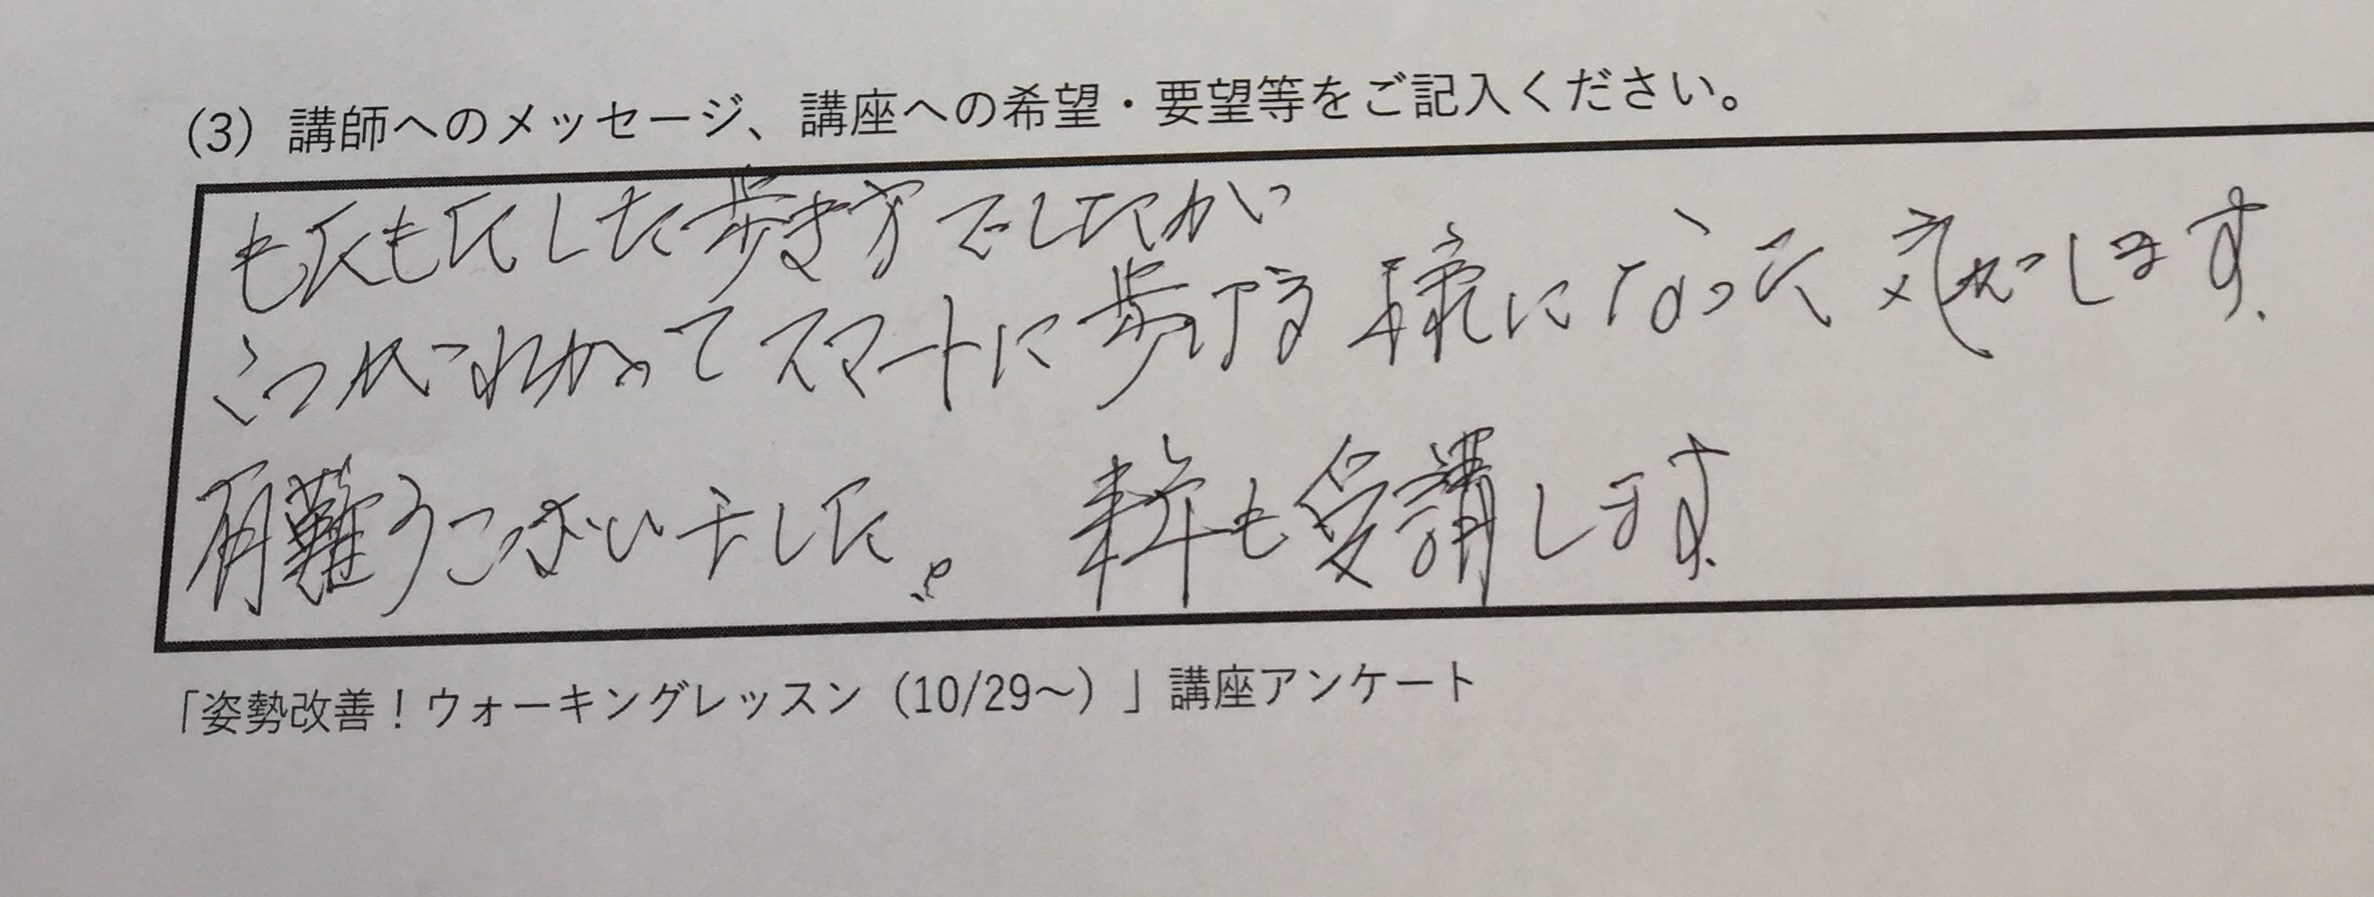 (3) 講師へのメッセージ、講座への希望・要望等をご記入ください。
もたもたした歩き方でしたが
こつがわかってスマートに歩ける様になった気がします.
有難うございました。 来年も受講します.
「姿勢改善！ウォーキングレッスン（10/29～）」講座アンケート